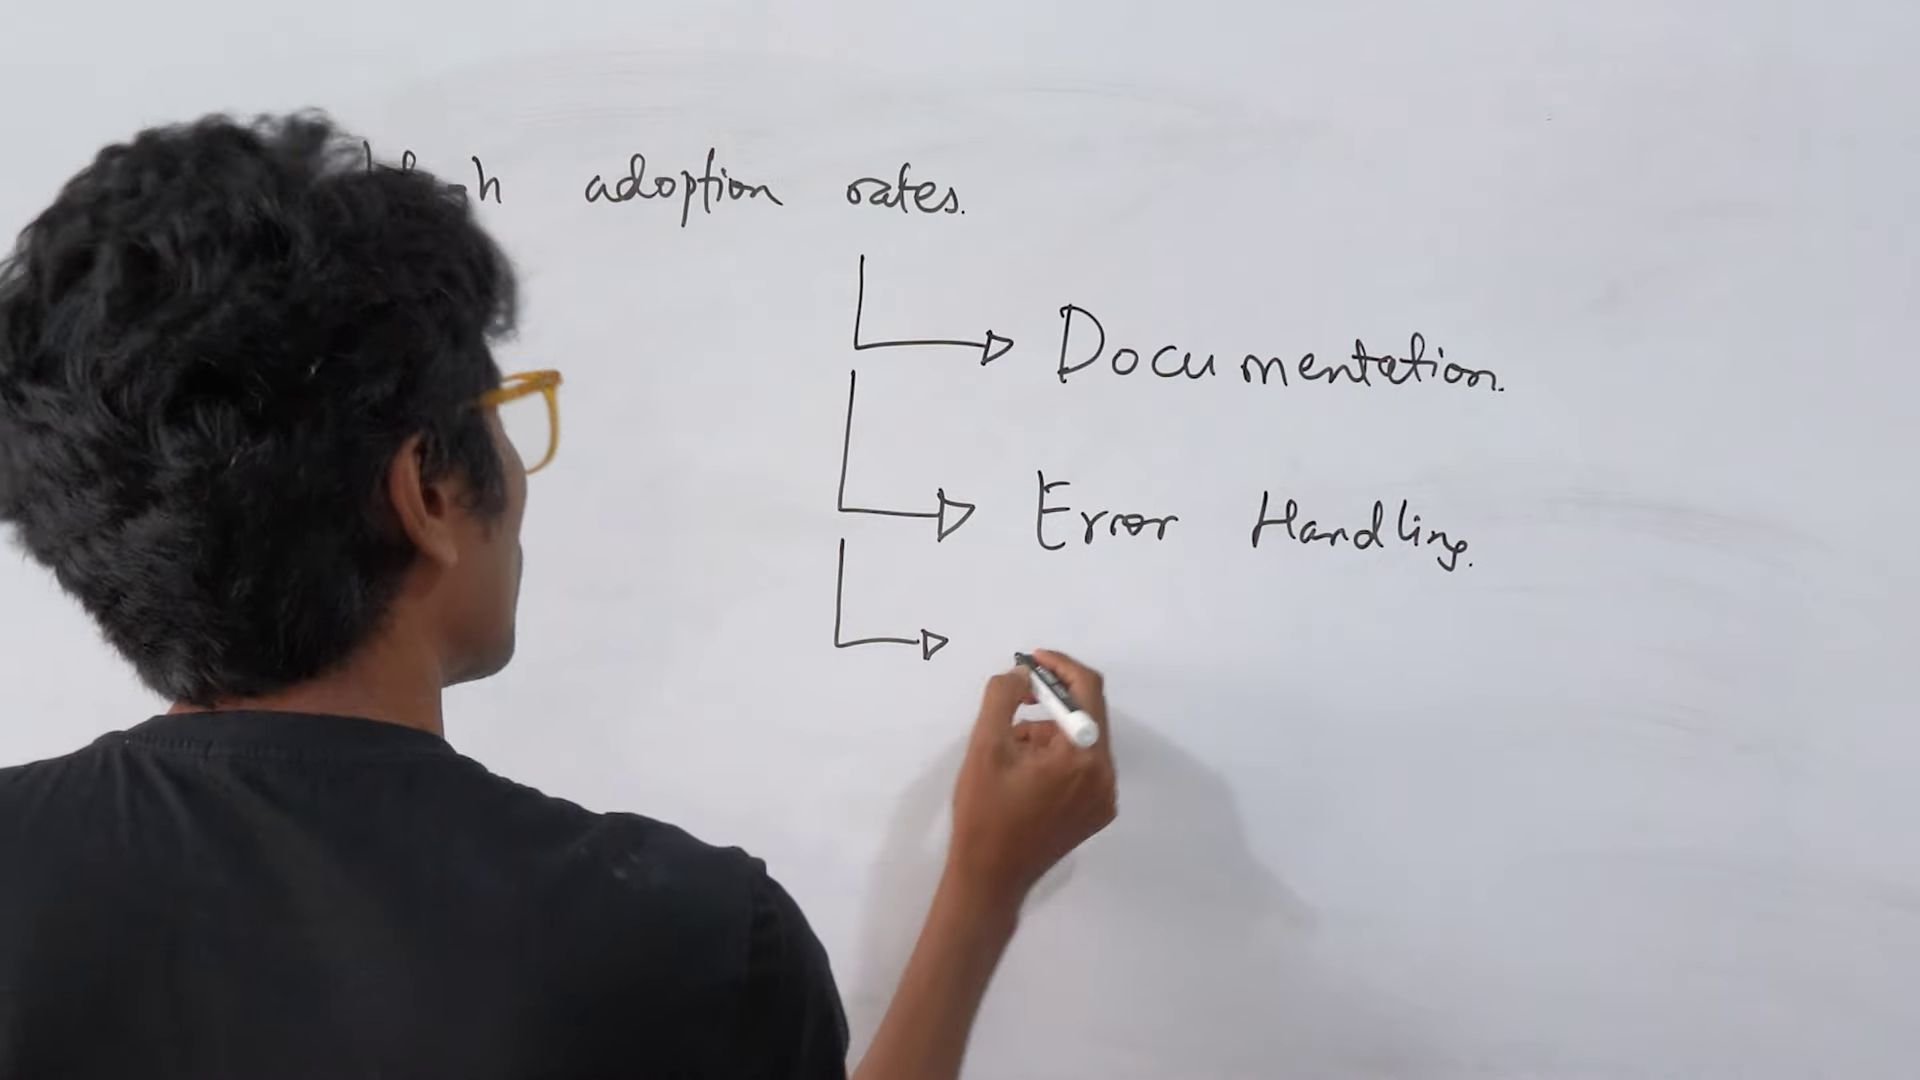 adoption rates.
Documentation.
Error Handling.